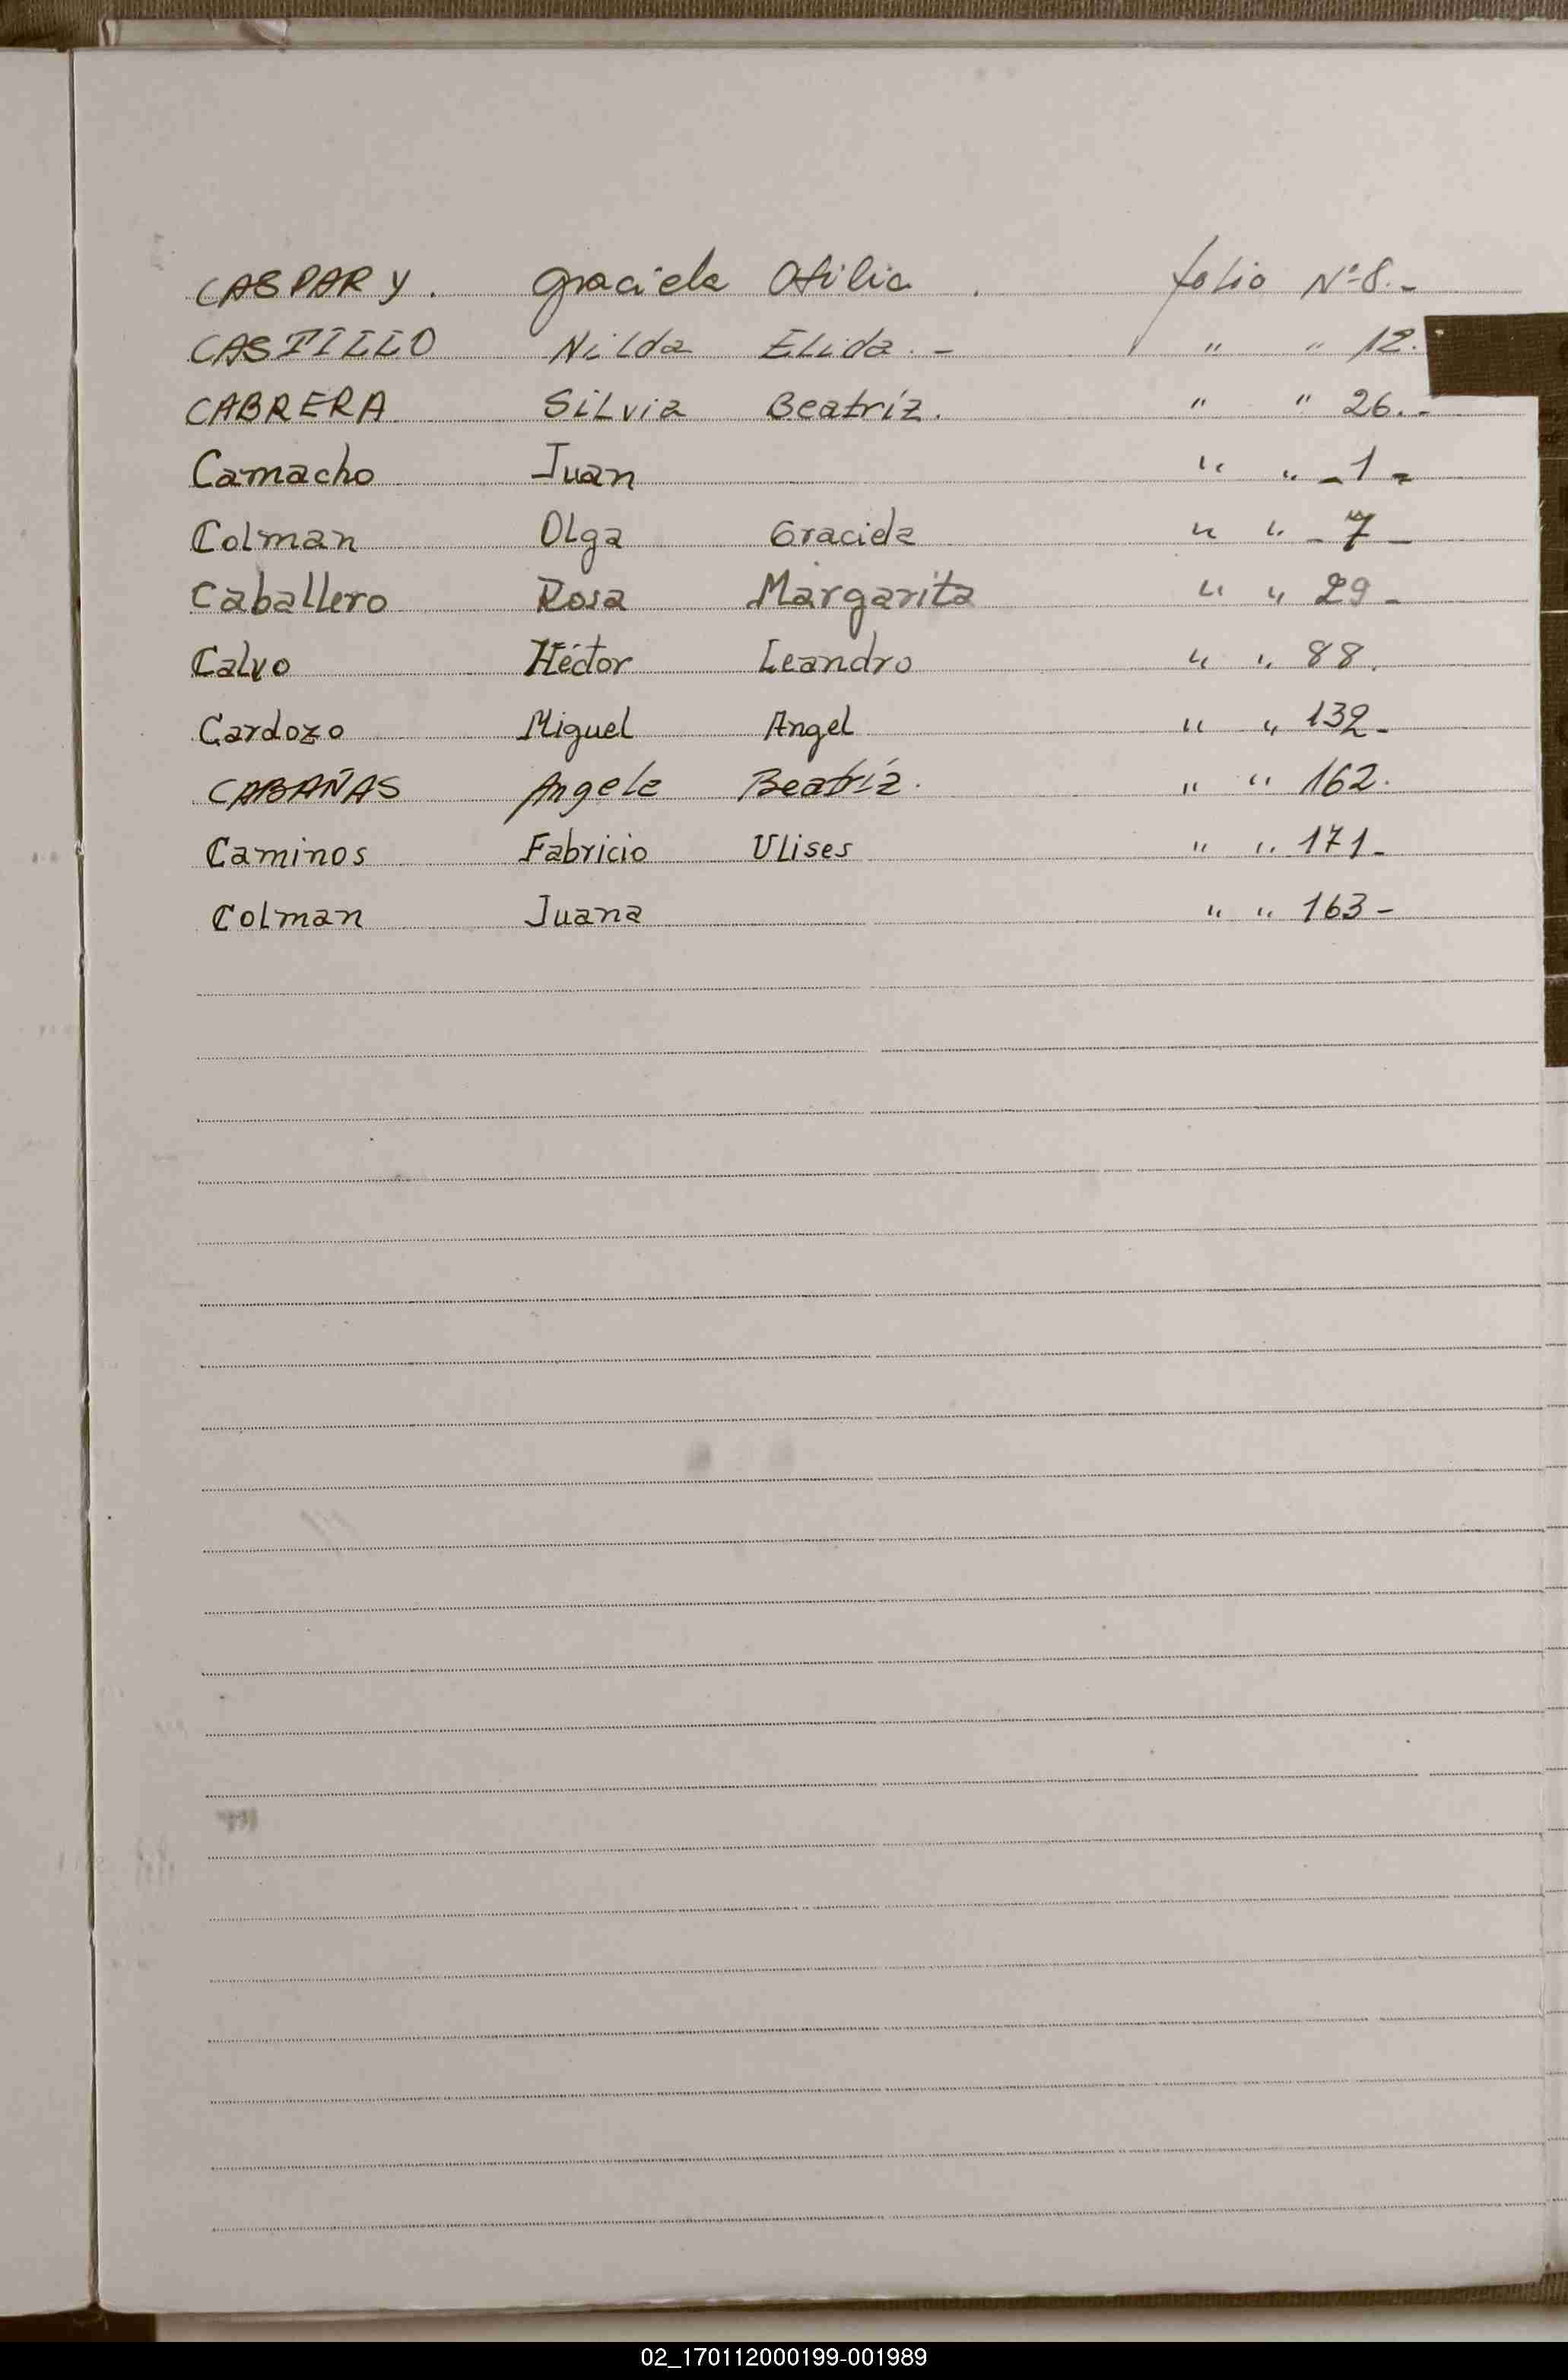 CASPARY. Graciela Otilia. folio Nº 8.-
CASTILLO Nilda Elida.- " " 12.
CABRERA Silvia Beatríz. " " 26.-
Camacho Juan " " -1-
Colman Olga Graciela " " -7-
Caballero Rosa Margarita " " 29-
Calvo Héctor Leandro " " 88.
Cardozo Miguel Angel " " 132-
CABAÑAS Angela Beatríz. " " 162.
Caminos Fabricio Ulises " " 171-
Colman Juana " " 163-
02_170112000199-001989